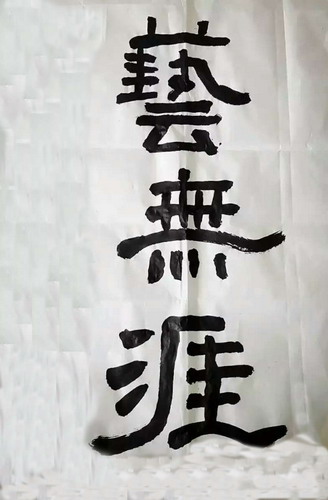 藝無涯